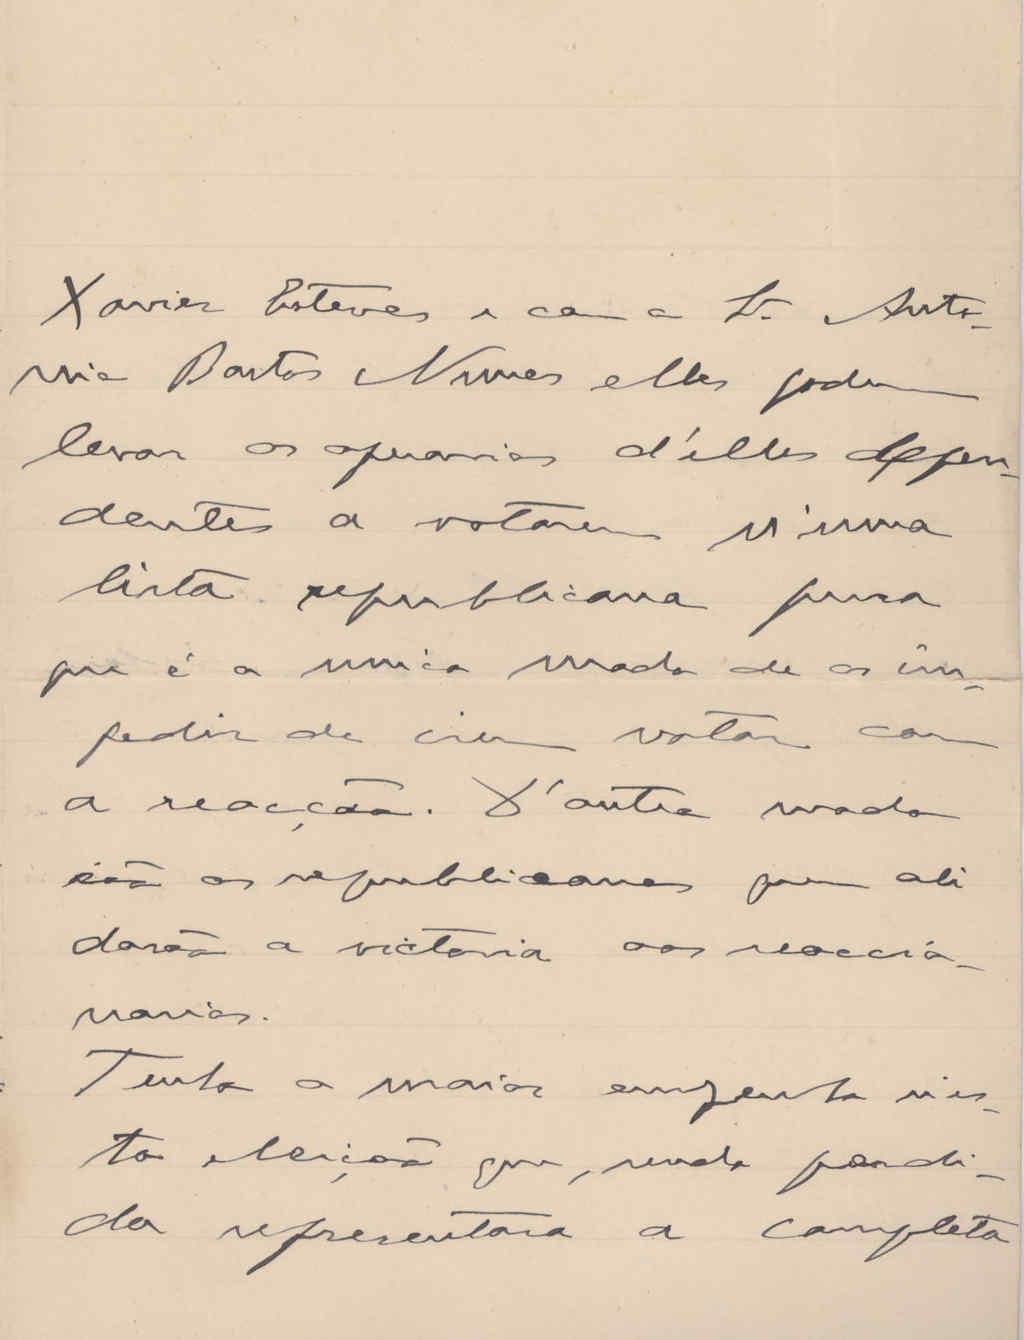 Xavier Esteves e com o Dr. Anto-
nio Bastos Nunes elles podem
levar os operarios d'elles depen-
dentes a votarem n'uma
lista republicana pura
que é o unico modo de os im-
pedir de irem votar com
a reacção. D'outro modo
são os republicanos quem ali
darão a victoria aos reaccio-
narios.
Tenho o maior empenho nes-
ta eleição que, sendo perdi-
da representará a completa